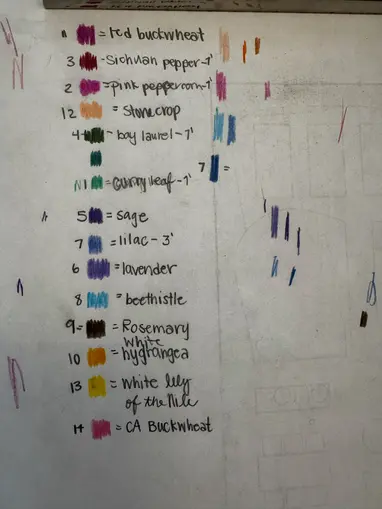 11 = red buckwheat
3 - Sichuan pepper - 1'
2 = pink peppercorn - 1'
12 = stonecrop
4 = bay laurel - 1'
7 =
N1 = Curry leaf - 1'
5 = sage
7 = lilac - 3'
6 = lavender
8 = beethistle
9 = Rosemary
white
10 = hydrangea
13 = White lily
of the Nile
14 = CA Buckwheat